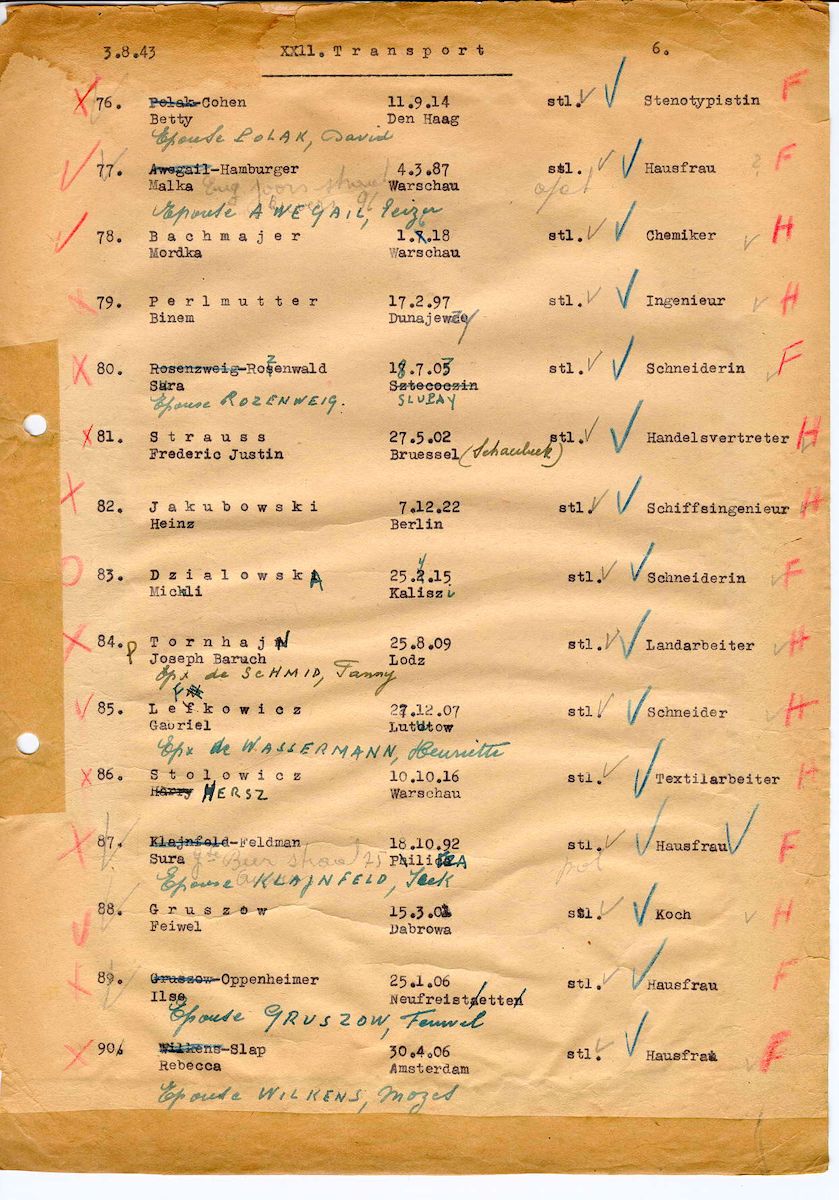 3.8.43 XX11. Transport 6.
X 76. Polak-Cohen 11.9.14 stl. Stenotypistin F
Betty Den Haag
Epouse POLAK, David
77. Awegail-Hamburger 4.3.87 stl. Hausfrau ? F
Malka Warschau
Epouse AWEGAIL, Leizer
78. Bachmajer 1.8.18 stl. Chemiker H
Mordka Warschau
X 79. Perlmutter 17.2.97 stl. Ingenieur H
Binem
X 80. Rosenzweig-Rozenwald 18.7.03 stl. Schneiderin F
Sara Sztecoczin
Epouse ROZENWEIG. SLUPAY
X 81. Strauss 27.5.02 stl. Handelsvertreter H
Frederic Justin Bruessel (Schaerbeek)
X 82. Jakubowski 7.12.22 stl. Schiffsingenieur H
Heinz Berlin
O 83. DzialowskA 25.4.15 stl. Schneiderin F
Mickli Kaliszi
X 84. TornhajN 25.8.09 stl. Landarbeiter H
P Joseph Baruch Lodz
Epx de SCHMID, Fanny
85. Lefkowicz 27.12.07 stl. Schneider H
Gabriel Lututow
Epx de WASSERMANN, Henriette
X 86. Stolowicz 10.10.16 stl. Textilarbeiter H
Harry HERSZ Warschau
X 87. Klajnfeld-Feldman 18.10.92 stl. Hausfrau F
Sura
Epouse KLAJNFELD, Icek
88. Gruszow 15.3.01 stl. Koch H
Feiwel Dabrowa
X 89. Gruszow-Oppenheimer 25.1.06 stl. Hausfrau F
Ilse Neufreistetten
Epouse GRUSZOW, Feuwel
X 90. Wilkens-Slap 30.4.06 stl. Hausfrau F
Rebecca Amsterdam
Epouse WILKENS, Mozes